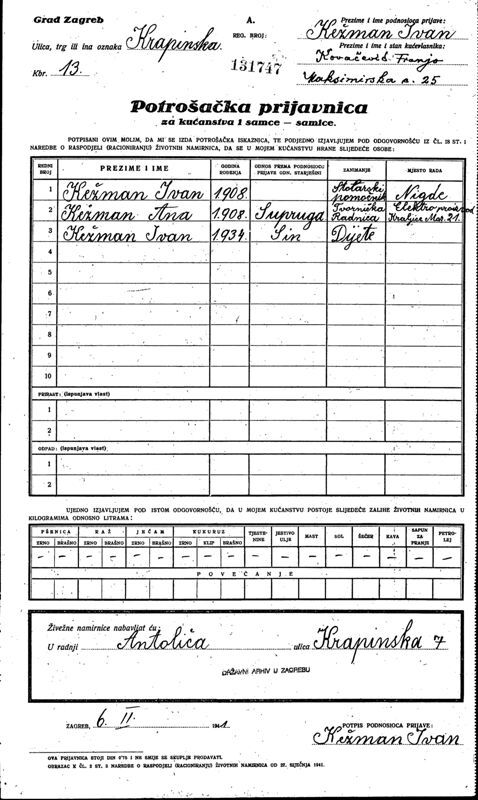 Grad Zagreb
A.
Prezime i ime podnosioca prijave:
Ulica, trg ili ina oznaka Krapinska
REG. BROJ:
Kežman Ivan
Prezime i ime i stan kućevlasnika:
Kbr. 13.
131747
Kovačević Franjo
Maksimirska c. 25
Potrošačka prijavnica
za kućanstva i samce — samice.
POTPISANI OVIM MOLIM, DA MI SE IZDA POTROŠAČKA ISKAZNICA, TE PODJEDNO IZJAVLJUJEM POD ODGOVORNOŠĆU IZ ČL. 18 ST. 1
NAREDBE O RASPODJELI (RACIONIRANJU) ŽIVOTNIH NAMIRNICA, DA SE U MOJEM KUĆANSTVU HRANE SLIJEDEĆE OSOBE:
REDNI BROJ PREZIME I IME GODINA ROĐENJA ODNOS PREMA PODNOSIOCU PRIJAVE ODN. STARJEŠINI ZANIMANJE MJESTO RADA
1 Kežman Ivan 1908. Stolarski pomoćnik Nigde
2 Kežman Ana 1908. Supruga Tvornička Radnica Elektro proizvod Kraljice Mar. 21.
3 Kežman Ivan 1934. Sin Dijete
4
5
6
7
8
9
10
PRIRAST: (ispunjava vlast)
1
2
OTPAD: (ispunjava vlast)
1
2
UJEDNO IZJAVLJUJEM POD ISTOM ODGOVORNOŠĆU, DA U MOJEM KUĆANSTVU POSTOJE SLIJEDEĆE ZALIHE ŽIVOTNIH NAMIRNICA U
KILOGRAMIMA ODNOSNO LITRAMA:
PŠENICA RAŽ JEČAM KUKURUZ TJESTENINE JESTIVO ULJE MAST SOL ŠEĆER KAVA SAPUN ZA PRANJE PETROLEJ
ZRNO BRAŠNO ZRNO BRAŠNO ZRNO BRAŠNO ZRNO KLIP BRAŠNO
— — — — — — — — — — — — — — — — —
POVEĆANJE
Živežne namirnice nabavljat ću:
U radnji Antolića ulica Krapinska 7
DRŽAVNI ARHIV U ZAGREBU
ZAGREB, 6. II. 1941
POTPIS PODNOSIOCA PRIJAVE:
Kežman Ivan
OVA PRIJAVNICA STOJI DIN 0'75 I NE SMIJE SE SKUPLJE PRODAVATI.
OBRAZAC K ČL. 2 ST. 3 NAREDBE O RASPODJELI (RACIONIRANJU) ŽIVOTNIH NAMIRNICA OD 27. SIJEČNJA 1941.